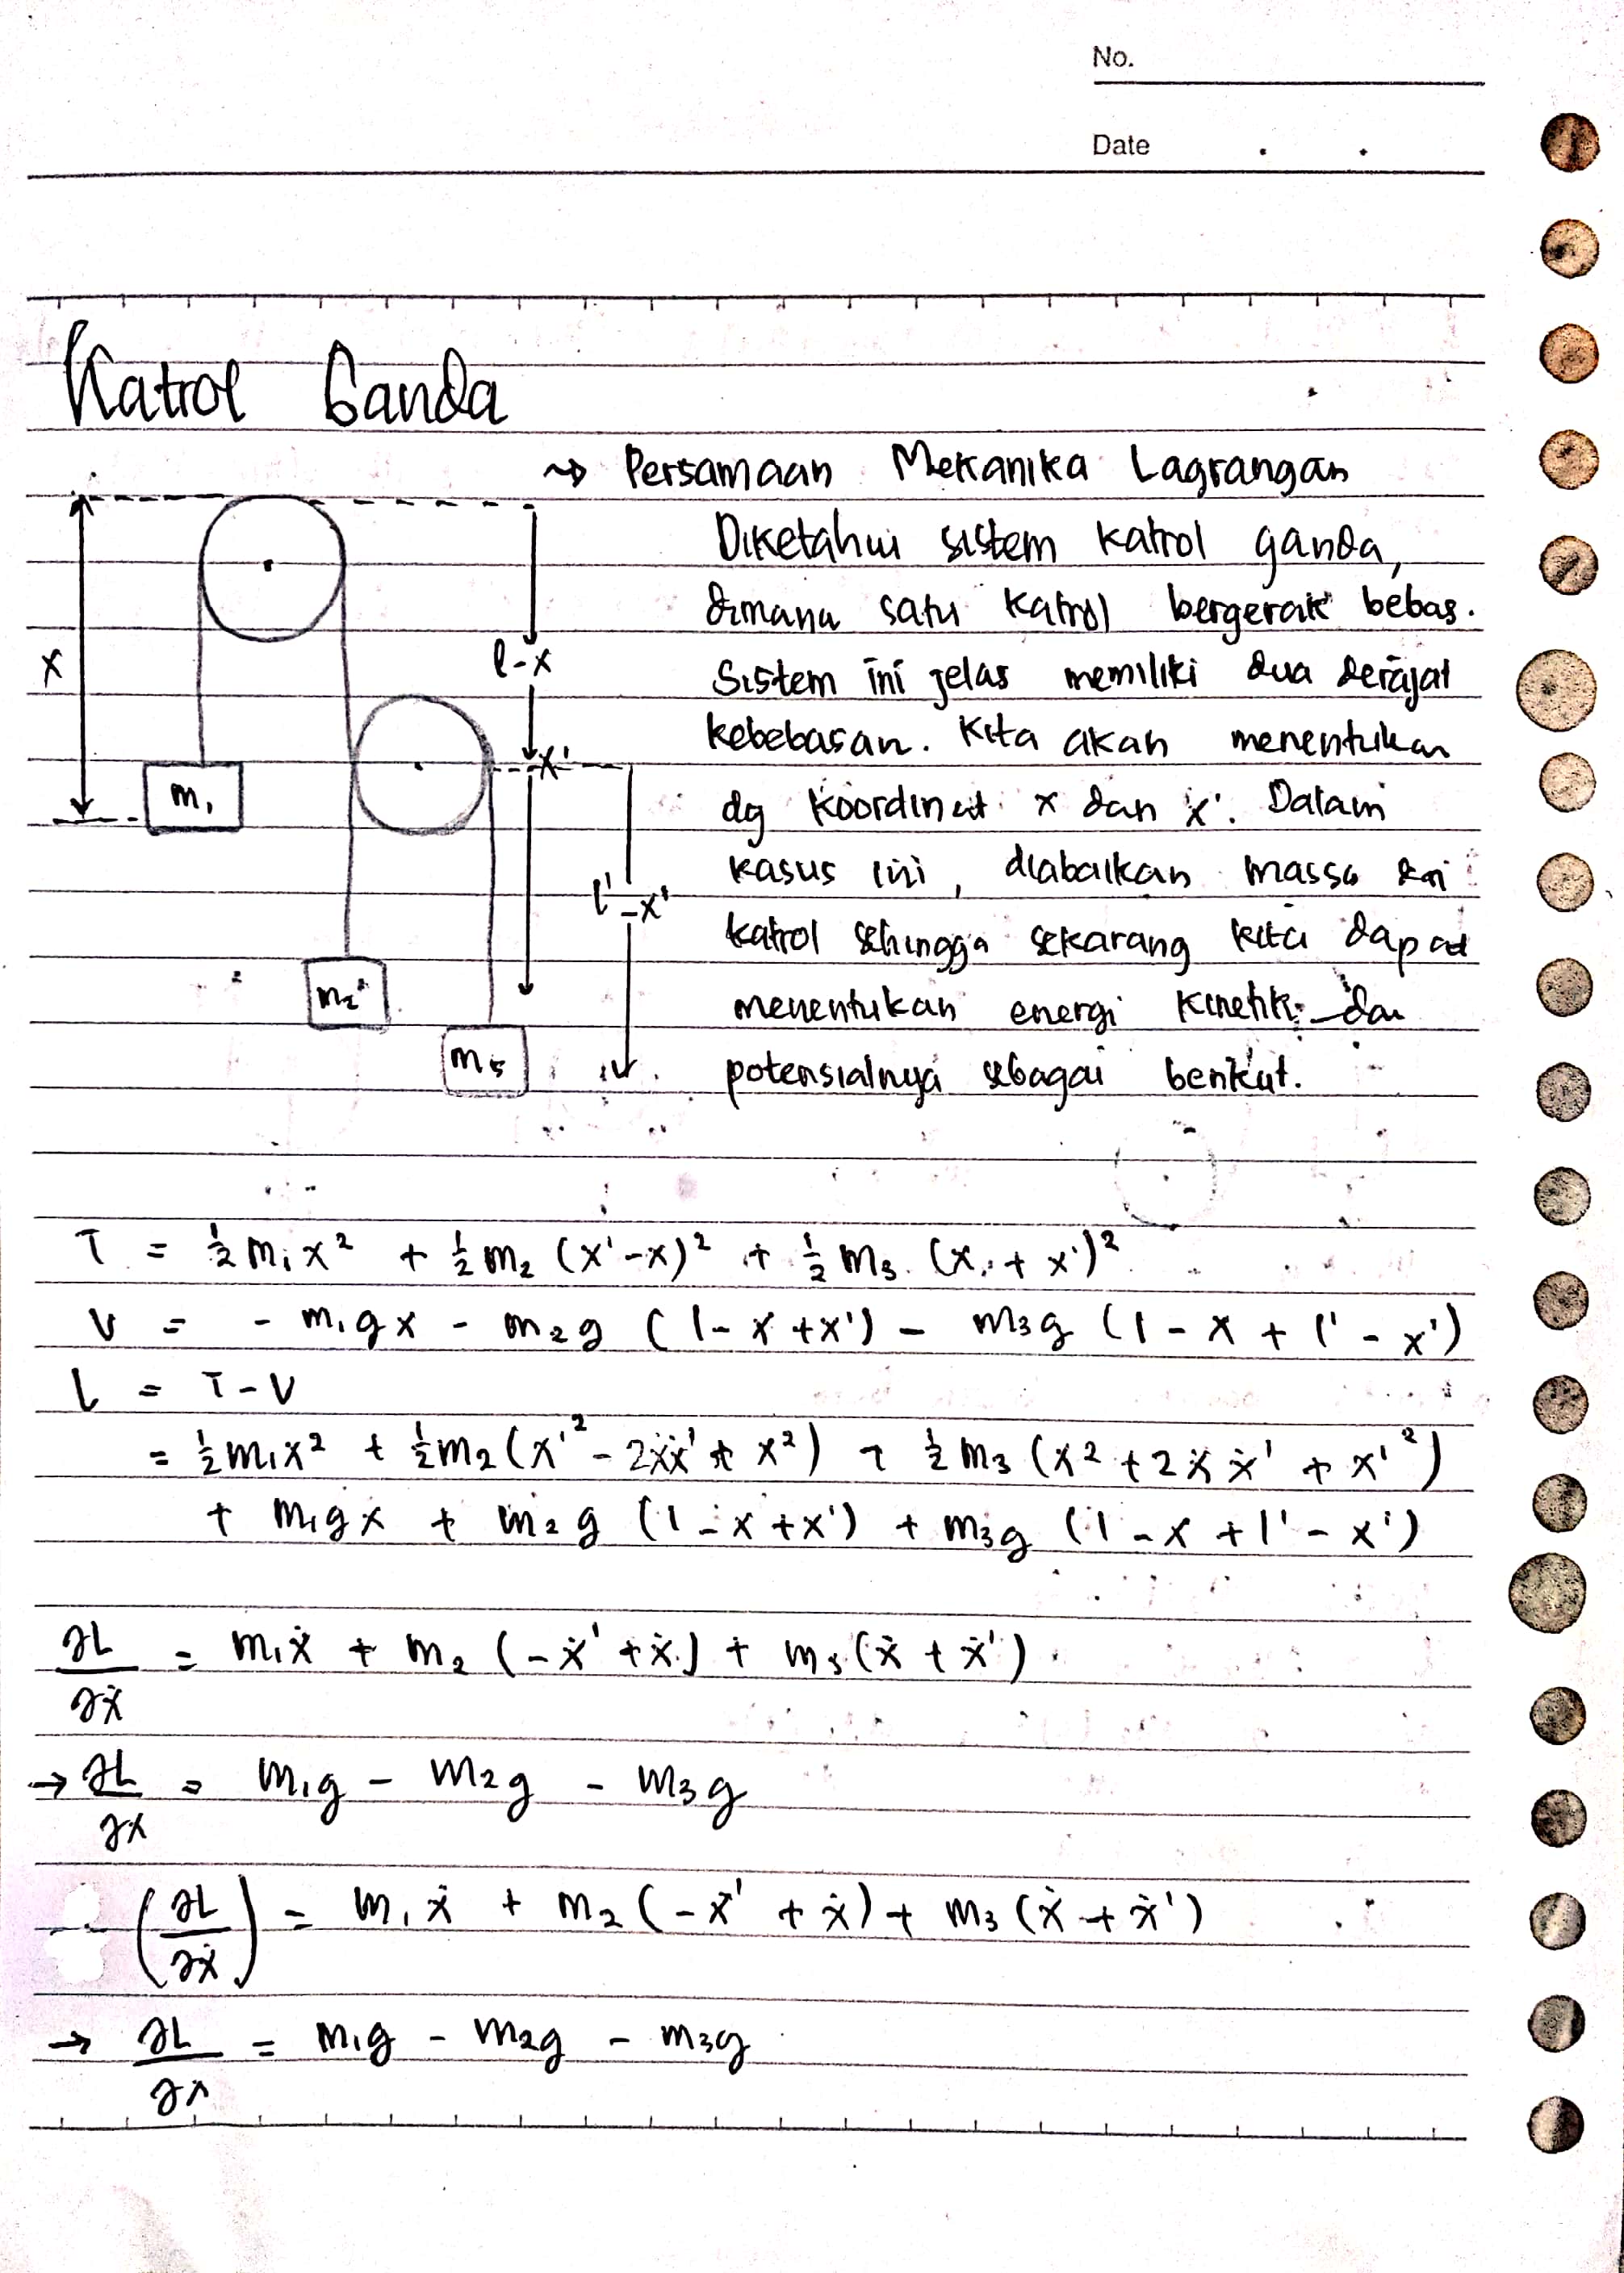 No.
Date
Katrol Ganda
~> Persamaan Mekanika Lagrangan
Diketahui sistem katrol ganda,
dimana satu katrol bergerak bebas.
Sistem ini jelas memiliki dua derajat
kebebasan. Kita akan menentukan
dg koordinat x dan x'. Dalam
kasus ini, diabaikan massa dri
katrol sehingga sekarang kita dapat
menentukan energi kinetik dan
potensialnya sebagai berikut.
x
l-x
x'
l'-x'
m₁
m₂
m₃
T = ½ m₁x² + ½ m₂ (x'-x)² + ½ m₃ (x + x')²
V = - m₁gx - m₂g (l - x + x') - m₃g (l - x + l' - x')
L = T - V
= ½ m₁x² + ½ m₂ (x'² - 2ẋẋ' + x²) + ½ m₃ (x² + 2ẋẋ' + x'²)
+ m₁gx + m₂g (l - x + x') + m₃g (l - x + l' - x')
∂L/∂ẋ = m₁ẋ + m₂ (-ẋ' + ẋ) + m₃ (ẋ + ẋ')
→ ∂L/∂x = m₁g - m₂g - m₃g
(∂L/∂ẋ) = m₁ẋ + m₂ (-ẋ' + ẋ) + m₃ (ẋ + ẋ')
→ ∂L/∂x = m₁g - m₂g - m₃g